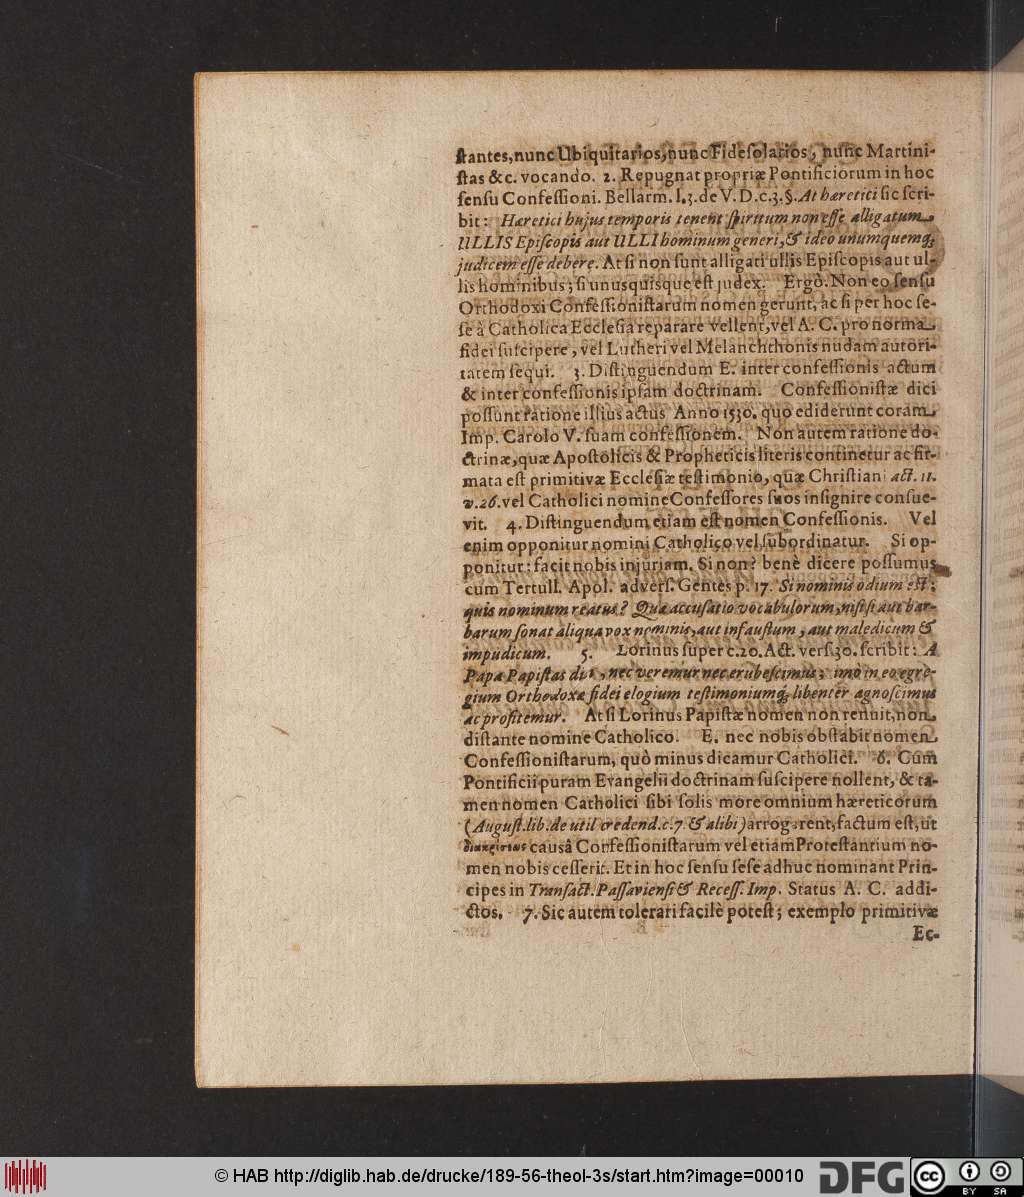 ſtantes, nunc Ubiquitarios, nunc Fideſolarios, nunc Martini-
ſtas &c. vocando. 2. Repugnat propriæ Pontificiorum in hoc
ſenſu Confeſſioni. Bellarm. l.3. de V. D. c.3. §. At hæretici ſic ſcri-
bit: Hæretici hujus temporis tenent ſpiritum non eſſe alligatum
ULLIS Epiſcopis aut ULLI hominum generi, & ideo unumquemq;
judicem eſſe debere. At ſi non ſunt alligati ullis Epiſcopis aut ul-
lis hominibus; ſi unusquisque eſt judex. Ergò. Non eo ſenſu
Orthodoxi Confeſſioniſtarum nomen gerunt, ac ſi per hoc ſe-
ſe à Catholica Eccleſia reparare vellent, vel A. C. pro norma
fidei ſuſcipere, vel Lutheri vel Melanchthonis nudam autori-
tatem ſequi. 3. Diſtinguendum E. inter confeſſionis actum
& inter confeſſionis ipſam doctrinam. Confeſſioniſtæ dici
poſſunt ratione illius actus Anno 1530. quo ediderunt coram
Imp. Carolo V. ſuam confeſſionem. Non autem ratione do-
ctrinæ, quæ Apoſtolicis & Propheticis literis continetur ac fir-
mata eſt primitivæ Eccleſiæ teſtimonio, quæ Chriſtiani act. 11.
v. 26. vel Catholici nomine Confeſſores ſuos inſignire conſue-
vit. 4. Diſtinguendum etiam eſt nomen Confeſſionis. Vel
enim opponitur nomini Catholico vel ſubordinatur. Si op-
ponitur: facit nobis injuriam. Si non? benè dicere poſſumus
cum Tertull. Apol. adverſ. Gentes p. 17. Si nominis odium eſt:
quis nominum reatus? Quæ accuſatio vocabulorum, niſi ſi aut bar-
barum ſonat aliqua vox nominis, aut infauſtum, aut maledicum &
impudicum. 5. Lorinus ſuper c. 20. Act. verſ. 30. ſcribit: A
Papa Papiſtas dici, nec veremur nec erubeſcimus; imò in eo egre-
gium Orthodoxæ fidei elogium teſtimoniumq; libenter agnoſcimus
ac profitemur. At ſi Lorinus Papiſtæ nomen non renuit, non
diſtante nomine Catholico. E. nec nobis obſtabit nomen
Confeſſioniſtarum, quò minus dicamur Catholici. 6. Cùm
Pontificii puram Evangelii doctrinam ſuſcipere nollent, & ta-
men nomen Catholici ſibi ſolis more omnium hæreticorum
(Auguſt. lib. de util credend. c. 7 & alibi) arrogarent, factum eſt, ut
διακρίσεως causâ Confeſſioniſtarum vel etiam Proteſtantium no-
men nobis ceſſerit. Et in hoc ſenſu ſeſe adhuc nominant Prin-
cipes in Transact. Paſſavienſi & Receſſ. Imp. Status A. C. addi-
ctos. 7. Sic autem tolerari facilè poteſt; exemplo primitivæ
Ec-
© HAB http://diglib.hab.de/drucke/189-56-theol-3s/start.htm?image=00010
DFG
cc BY SA